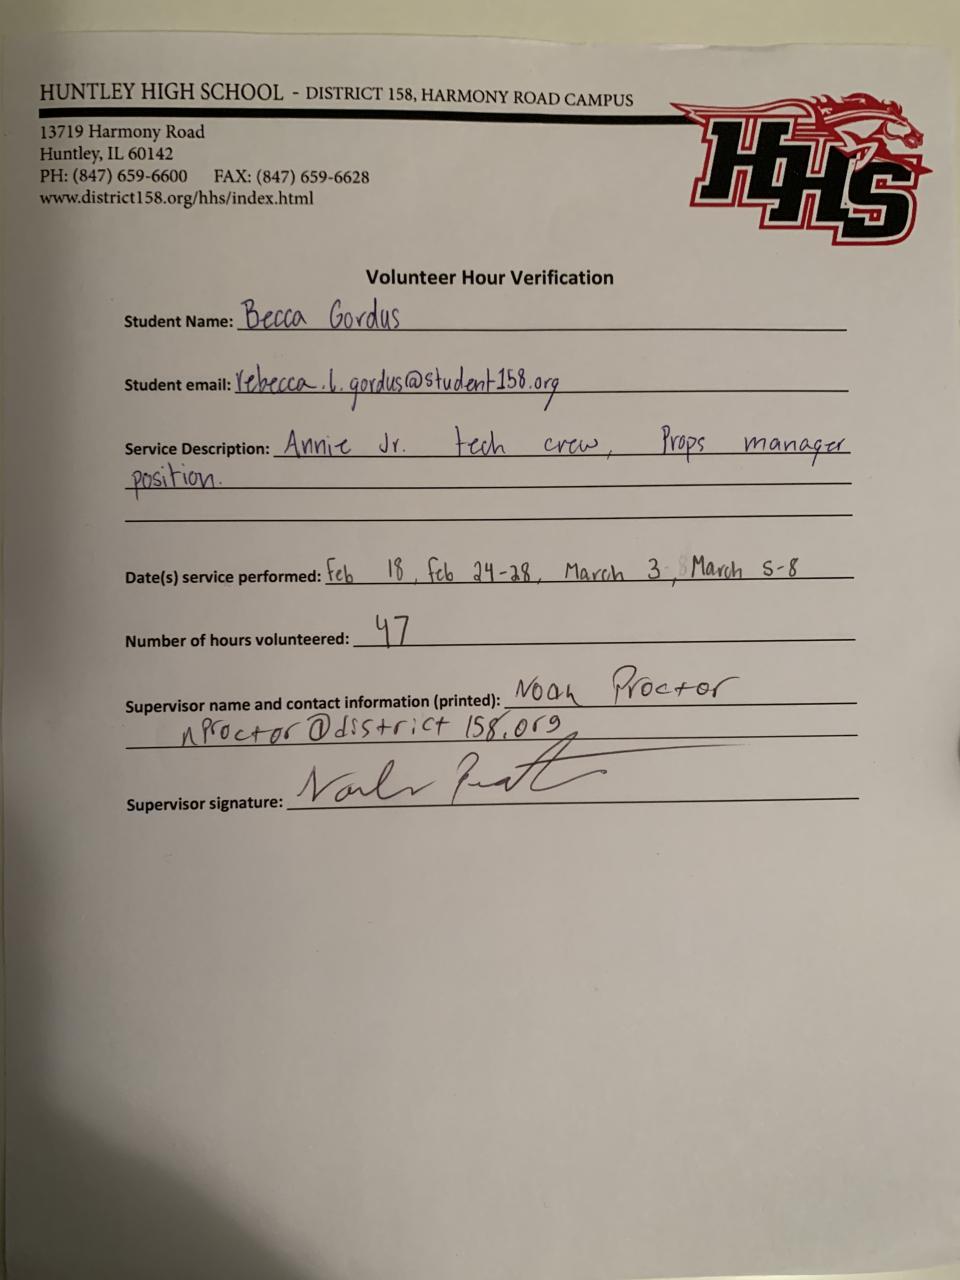 HUNTLEY HIGH SCHOOL - DISTRICT 158, HARMONY ROAD CAMPUS
13719 Harmony Road
Huntley, IL 60142
PH: (847) 659-6600 FAX: (847) 659-6628
www.district158.org/hhs/index.html
HHS
Volunteer Hour Verification
Student Name: Becca Gordus
Student email: rebecca.l.gordus@student158.org
Service Description: Annie Jr. tech crew, Props manager
position.
Date(s) service performed: Feb 18, Feb 24-28, March 3, March 5-8
Number of hours volunteered: 47
Supervisor name and contact information (printed): Noah Proctor
nproctor@district158.org
Supervisor signature: